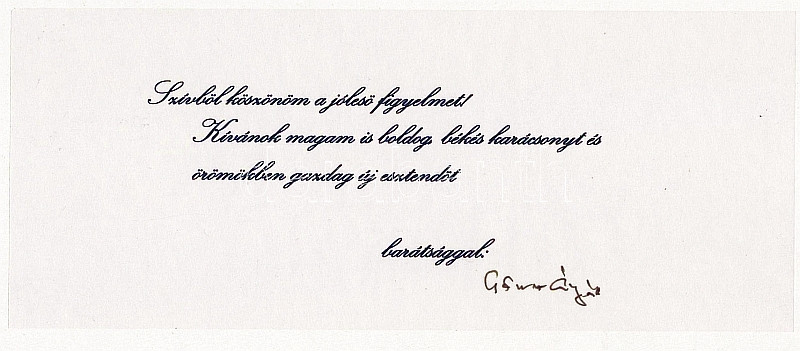 Szívből köszönöm a jóleső figyelmet!
Kívánok magam is boldog, békés karácsonyt és
örömökben gazdag új esztendőt
barátsággal:
Göncz Árpád